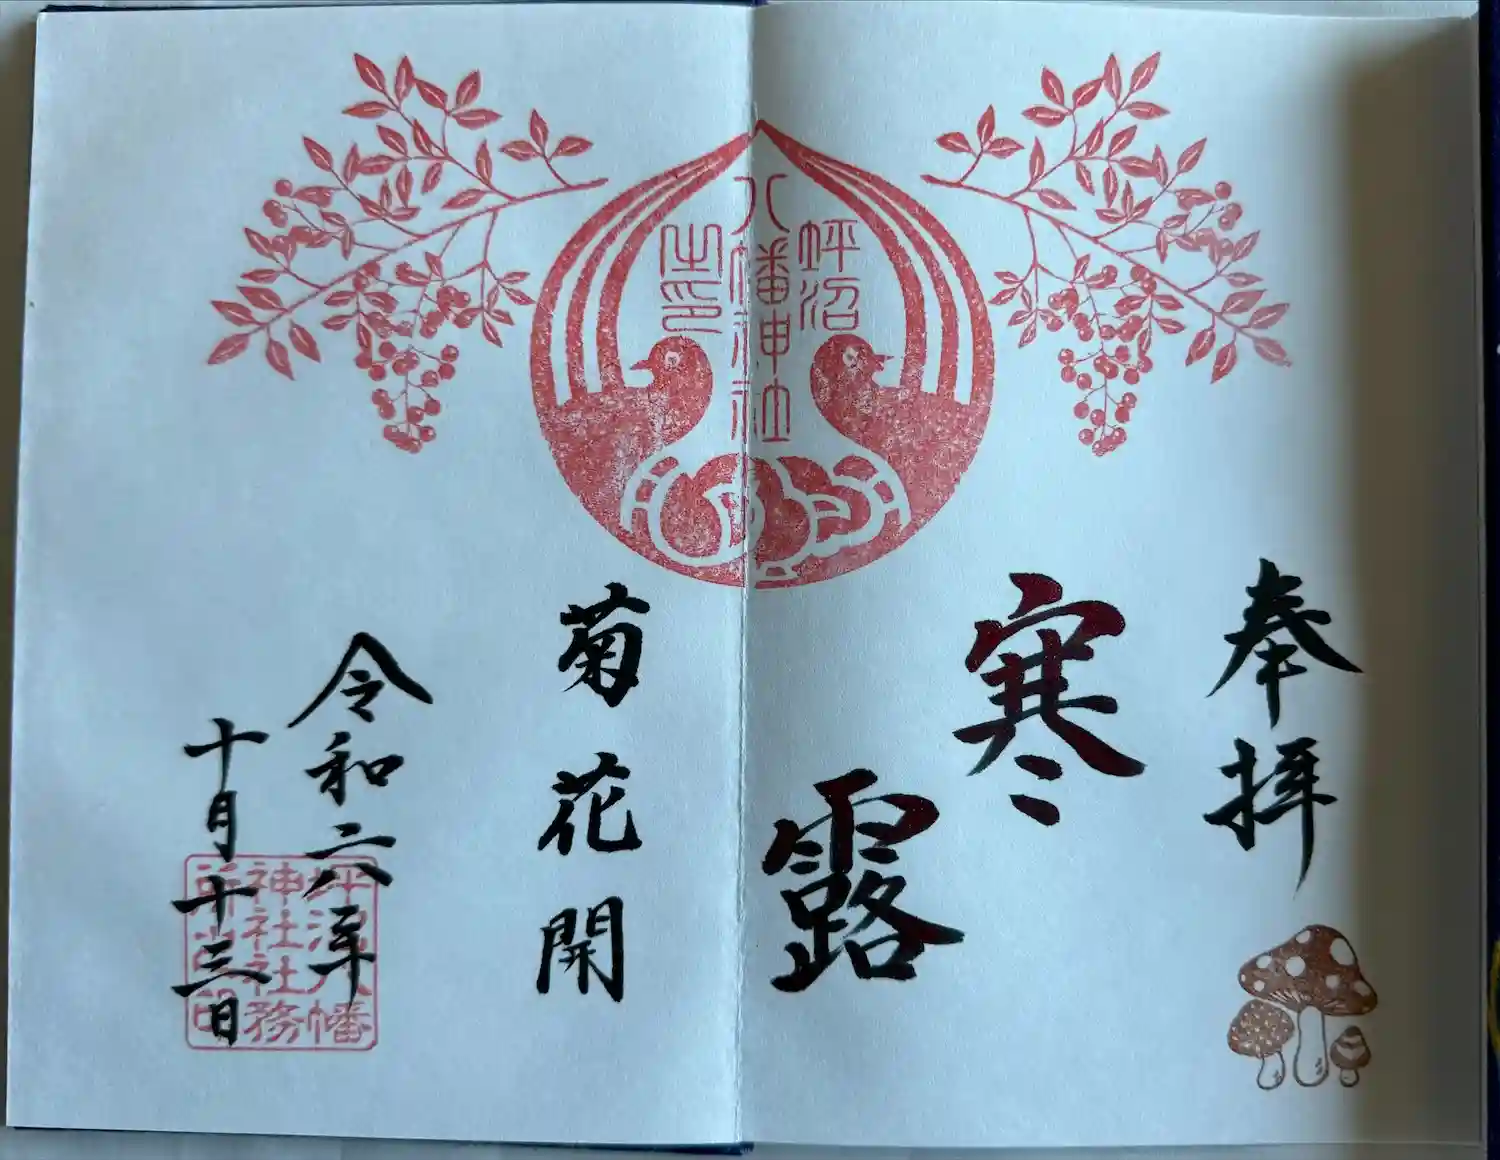 奉拝
寒露
坪沼
八幡神社
之印
菊花開
令和六年
十月十三日
坪沼八幡
神社社務
所之印